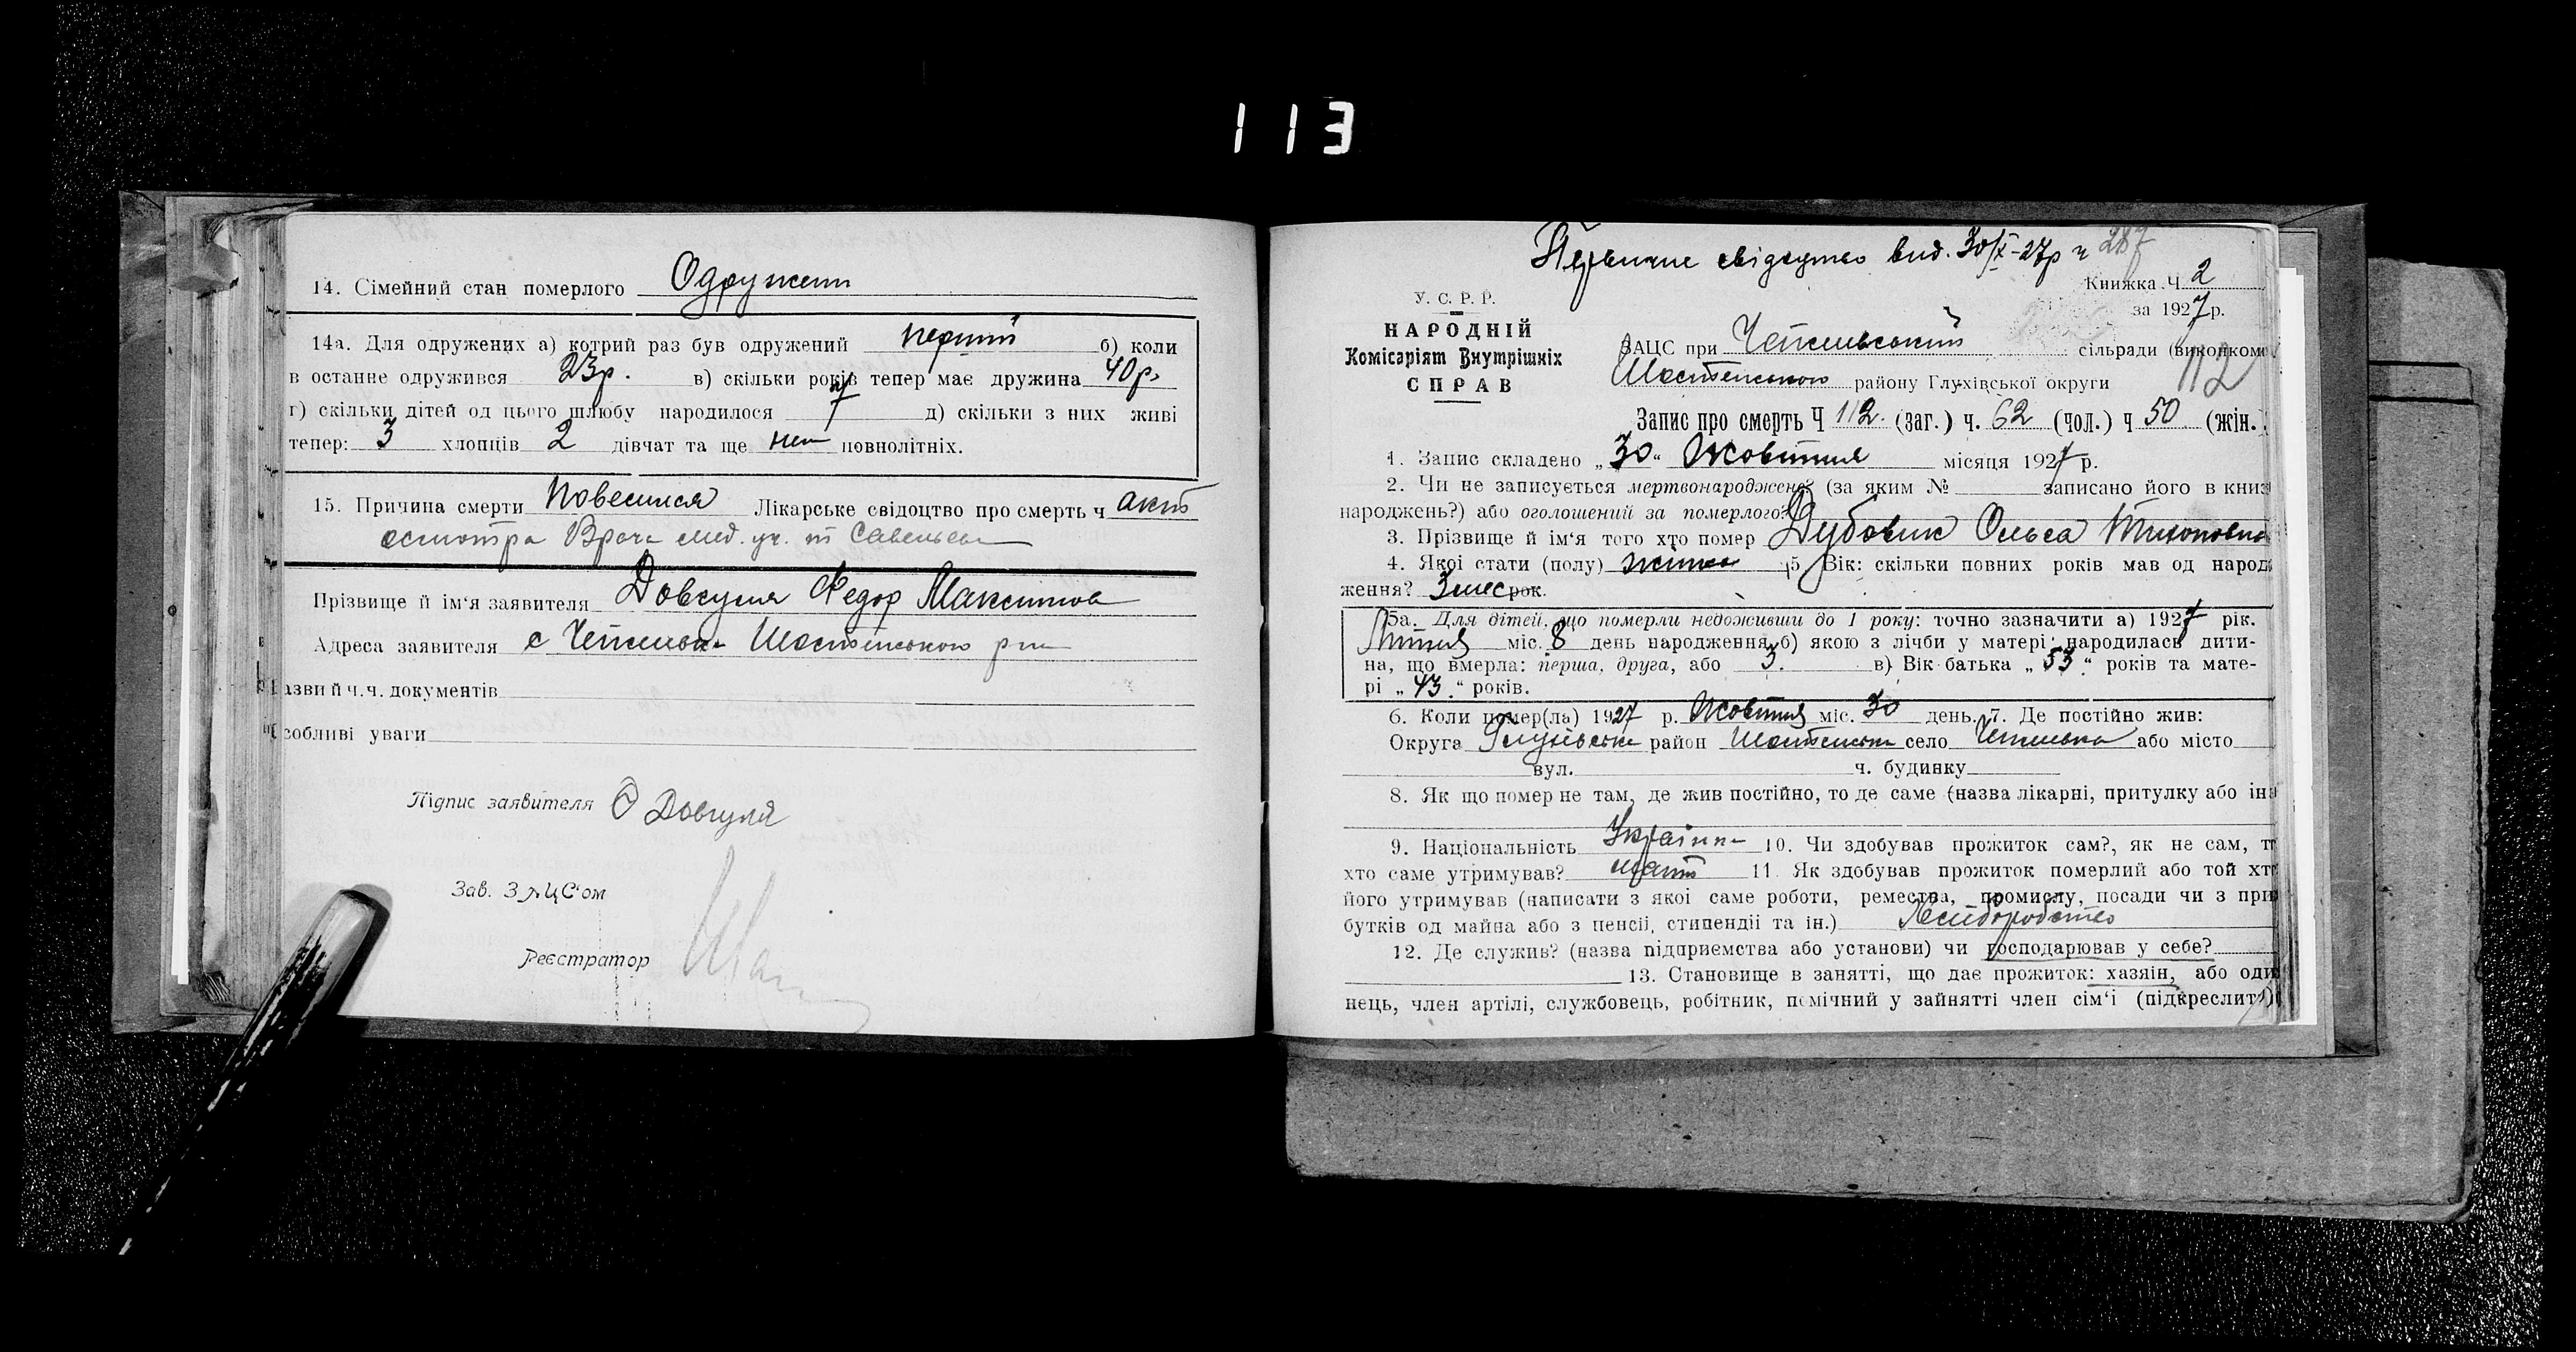 113
14. Сімейний стан померлого Одружени
14а. Для одружених а) котрий раз був одружений перший б) коли
в останне одружився 23р. в) скільки років тепер має дружина 40р.
г) скільки дітей од цього шлюбу народилося 7 д) скільки з них живі
тепер: 3 хлопців 2 дівчат та ще нет повнолітніх.
15. Причина смерти Повесился Лікарське свідоцтво про смерть ч акт
осмотра Врача мед. уч.
Прізвище й ім'я заявителя Довгуля Федор Максимов
Адреса заявителя с Чепілька Шостенського р-ну
азви й ч.ч. документів
собливі уваги
Підпис заявителя Ф Довгуля
Зав. ЗАЦС'ом
Реєстратор
Первичне свідоцтво вид. 30/X-27р ч 287
Книжка Ч. 2
за 1927 р.
У. С. Р. Р.
НАРОДНІЙ
Комісаріят Внутрішніх
СПРАВ
ЗАЦС при сільради (виконком
Шостенського району Глухівської округи
112
Запис про смерть Ч 112. (заг.) ч. 62 (чол.) ч 50 (жін.)
1. Запис складено „30" Жовтня місяця 1927 р.
2. Чи не записується мертвонароджене? (за яким № записано його в книз
народжень?) або оголошений за померлого?
3. Прізвище й ім'я того хто помер Дубовик Ольга Тихоновна
4. Якої стати (полу) жінка 5 Вік: скільки повних років мав од народ
ження? 3 мес рок.
5а. Для дітей, що померли недоживши до 1 року: точно зазначити а) 1927 рік.
міс. 8 день народження, б) якою з лічби у матері народилась дити-
на, що вмерла: перша, друга, або 3. в) Вік батька „53" років та мате-
рі „43" років.
6. Коли помер(ла) 1927 р. Жовтня міс. 30 день. 7. Де постійно жив:
Округа Глухівська район Шостенська село або місто
вул. ч. будинку
8. Як що помер не там, де жив постійно, то де саме (назва лікарні, притулку або ін
9. Національність Українка 10. Чи здобував прожиток сам?, як не сам, т
хто саме утримував? мати 11. Як здобував прожиток померлий або той хт
його утримував (написати з якої саме роботи, ремества, промислу, посади чи з при
бутків од майна або з пенсії, стипендії та ін.)
12. Де служив? (назва підприємства або установи) чи господарював у себе?
13. Становище в занятті, що дає прожиток: хазяін, або оди
нець, член артілі, службовець, робітник, помічний у зайнятті член сім'ї (підкреслити)